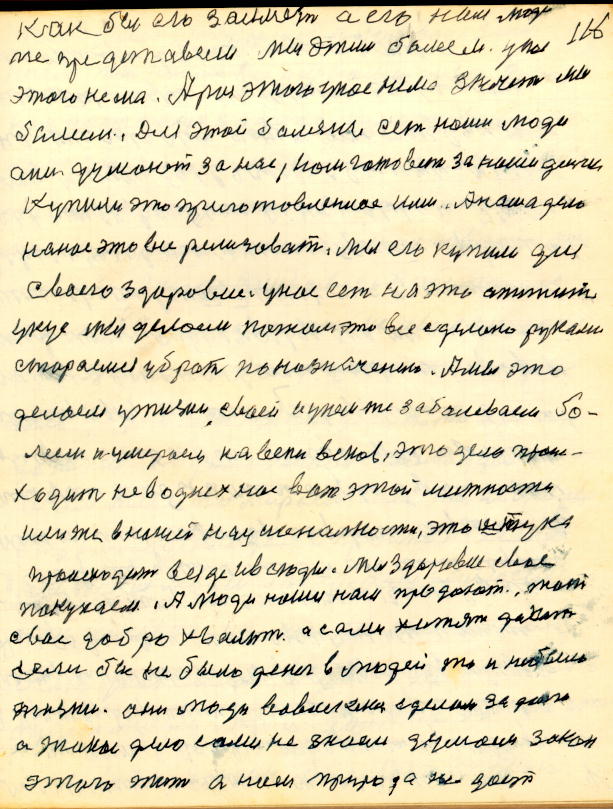 как бы его заимет а его нам люди 116
не предоставели мы этим болеем. унас
этого нема. А раз этого унас нема значет мы
балеем. Для этой болячке сет наши люди
ани думоют за нас, нам готовят за наши денги
Купили это приготовленное ими. А наша дело
наное это все релизоват. мы его купили для
своего здаровие. унас ест на это аппетит
укус мы делаем потом это все сделано руками
стараемся убрат по назначению. А мы это
делаем ужизни своей и унемже заболеваем бо-
леем и умераем на веки веков, это дело проис-
ходит не водних нас вот этой митности
или же в нашей нацыоналности, это штука
происходит везде и всюды. мы здаровие свое
покупаем. А люди наши нам продают.
свое добро хвалят. а сами хотят
если бы не было денег в людей то и не было
жизни. они люди вовлечены сделали за дело
а такое дело сами не знаем думаем закон
этого а нам природа не дает